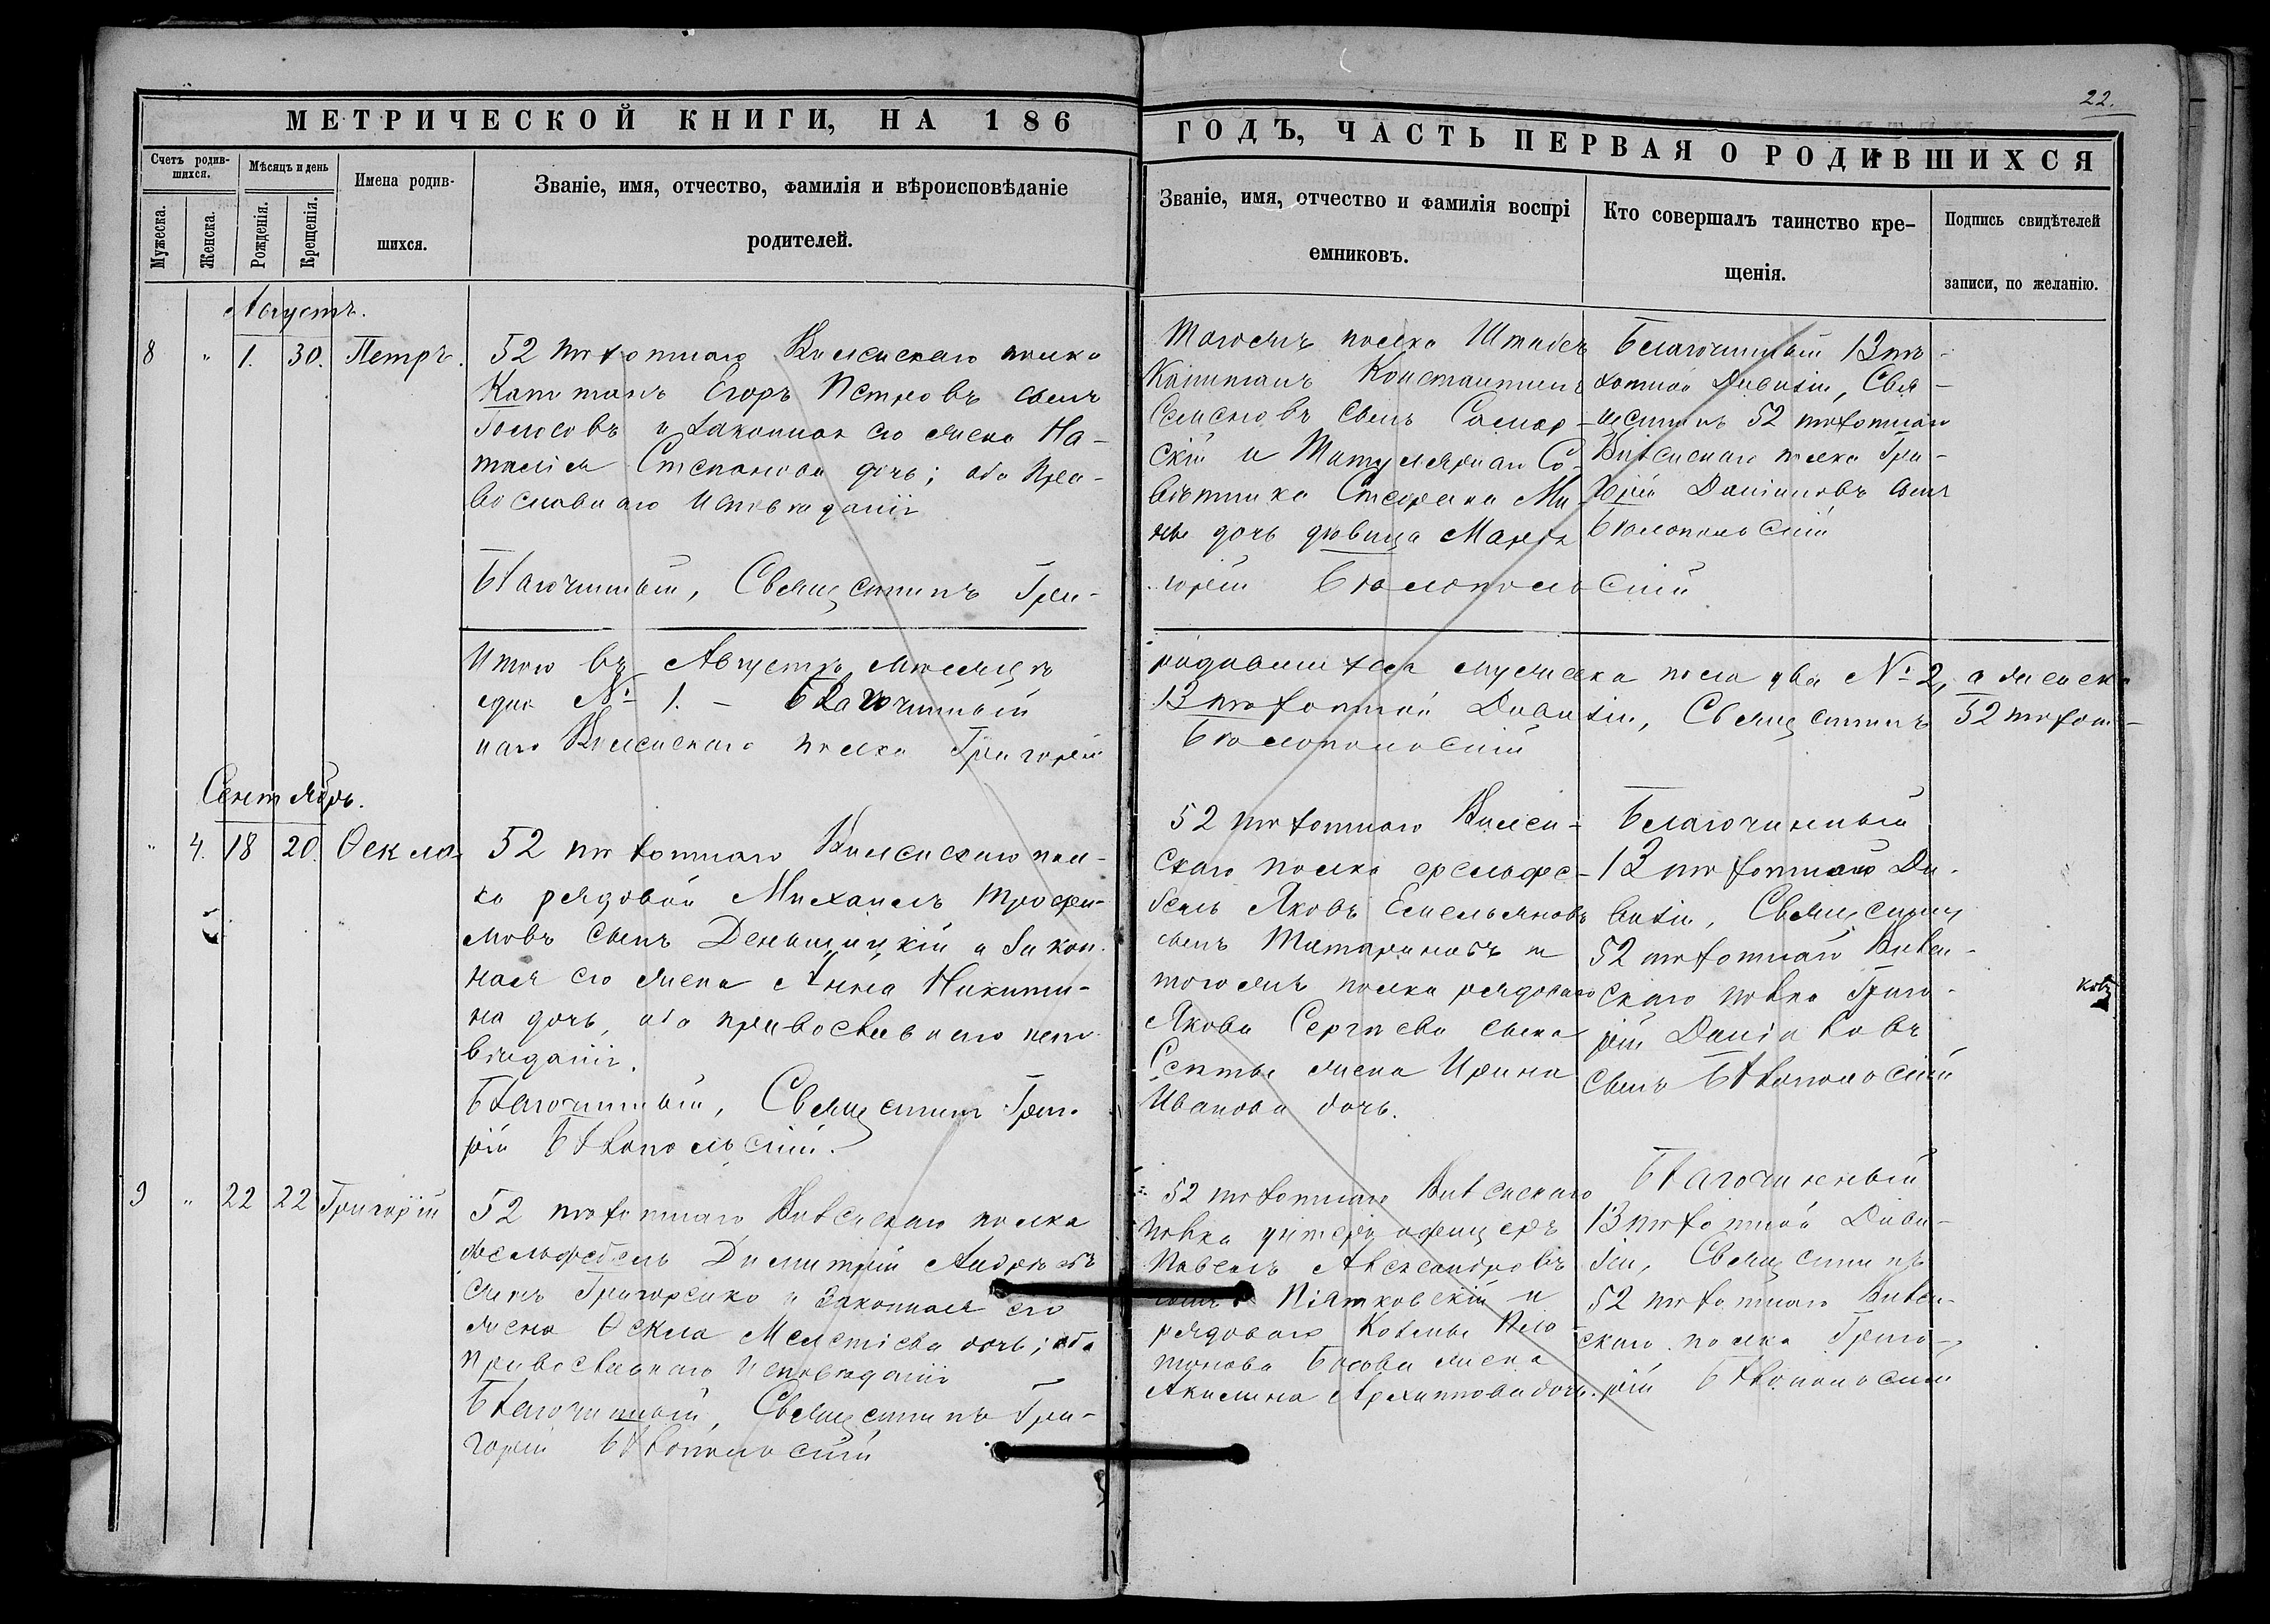 22.
МЕТРИЧЕСКОЙ КНИГИ, НА 186
ГОДЪ, ЧАСТЬ ПЕРВАЯ О РОДИВШИХСЯ
Счетъ родив-
шихся.
Мѣсяцъ и день
Имена родив-
шихся.
Званіе, имя, отчество, фамилія и вѣроисповѣданіе
родителей.
Мужеска.
Женска.
Рожденія.
Крещенія.
Званіе, имя, отчество и фамилія воспрі
емниковъ.
Кто совершалъ таинство кре-
щенія.
Подпись свидѣтелей
записи, по желанію.
Августъ.
8 " 1. 30. Петръ.
52 пѣхотнаго Виленскаго полка
Капитанъ Егоръ Петровъ сынъ
и законная его жена На-
талія Степанова дочь; оба Пра-
вославнаго исповѣданія
Благочинный, Священникъ Гри-
Тогожъ полка Штабсъ
Капитанъ Константинъ
Семеновъ сынъ Самар-
скій и Титулярнаго Со-
вѣтника
дочь дѣвица Марія
горій Бѣлопольскій
Благочинный 13 пѣ-
хотной Дивизіи, Свя-
щенникъ 52 пѣхотнаго
Виленскаго полка Гри-
горій Даніиловъ сынъ
Бѣлопольскій
Итого въ Августѣ мѣсяцѣ
одна № 1. – Благочинный
наго Виленскаго полка Григорій
родившихся мужеска пола два № 2, а женска
13 пѣхотной Дивизіи, Священникъ 52 пѣхот-
Бѣлопольскій
Сентябрь.
" 4. 18 20. Ѳекла
52 пѣхотнаго Виленскаго пол-
ка рядовой Михаилъ Трофи-
мовъ сынъ Деньщицкій и закон-
ная его жена Анна Никити-
на дочь, оба православнаго испо-
вѣданія.
Благочинный, Священникъ Григо-
рій Бѣлопольскій.
52 пѣхотнаго Вилен-
скаго полка фельдфе-
бель Яковъ Емельяновъ
сынъ Татариновъ и
тогожъ полка рядоваго
Якова Сергѣева сына
жена Ирина
Иванова дочь.
Благочинный
13 пѣхотной Ди-
визіи, Священникъ
52 пѣхотнаго Вилен-
скаго полка Григо-
рій Даніиловъ
сынъ Бѣлопольскій
9 " 22 22 Григорій
52 пѣхотнаго Виленскаго полка
фельдфебель Димитрій Андреевъ
сынъ Григоренко и законная его
жена Ѳекла Мелетіева дочь; оба
православнаго исповѣданія
Благочинный, Священникъ Гри-
горій Бѣлопольскій
52 пѣхотнаго Виленскаго
полка унтеръ офицеръ
Павелъ Александровъ
сынъ Піятковскій и
рядоваго
жена
Акилина Архиппова дочь.
Благочинный
13 пѣхотной Диви-
зіи, Священникъ
52 пѣхотнаго Вилен-
скаго полка Григо-
рій Бѣлопольскій